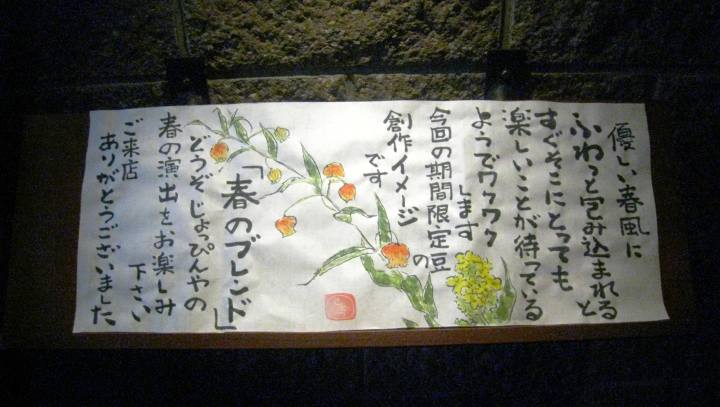 優しい春風に
ふわっと包み込まれると
すぐそこにとっても
楽しいことが待っている
ようでワクワク
します
今回の期間限定豆の
創作イメージ
です
「春のブレンド」
どうぞじょっぴんやの
春の演出をお楽しみ
下さい
ご来店
ありがとうございました